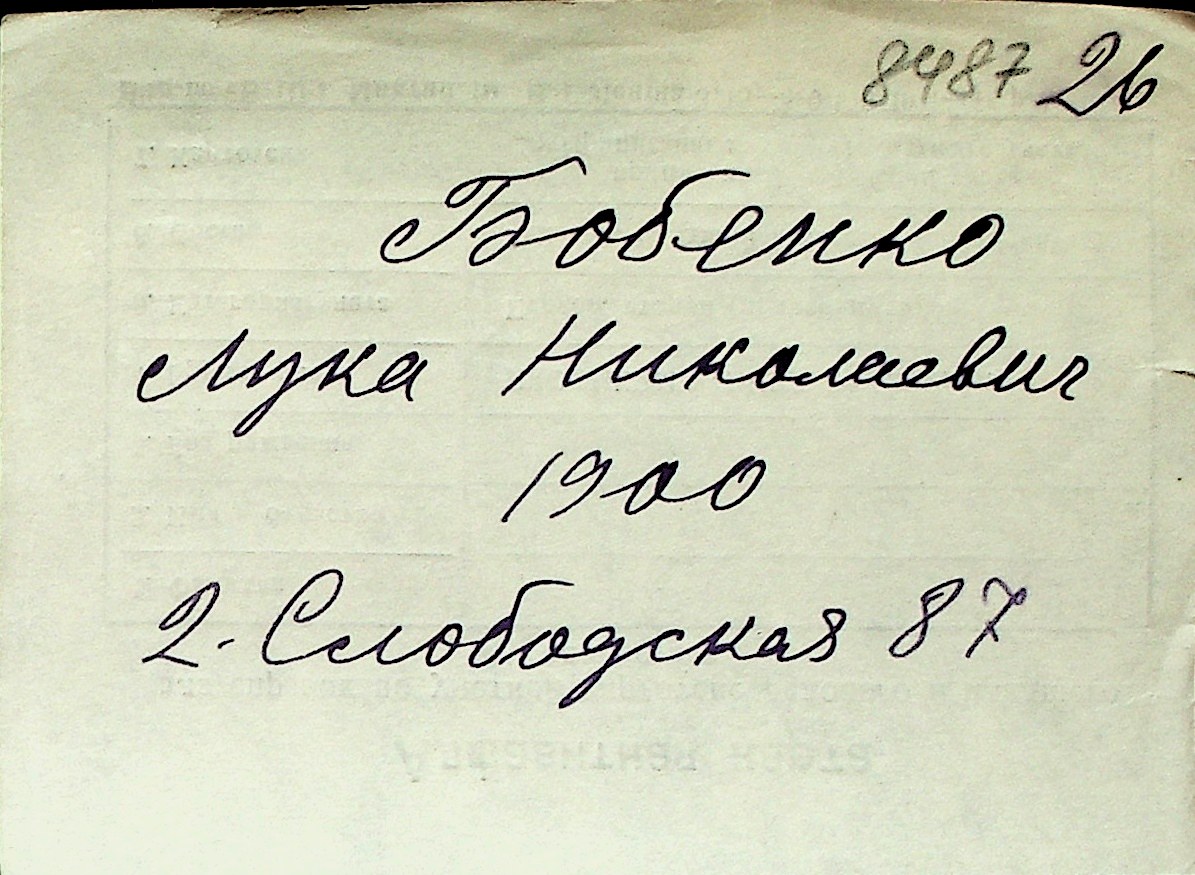 8487 26
Бобенко
Лука Николаевич
1900
2. Слободская 87